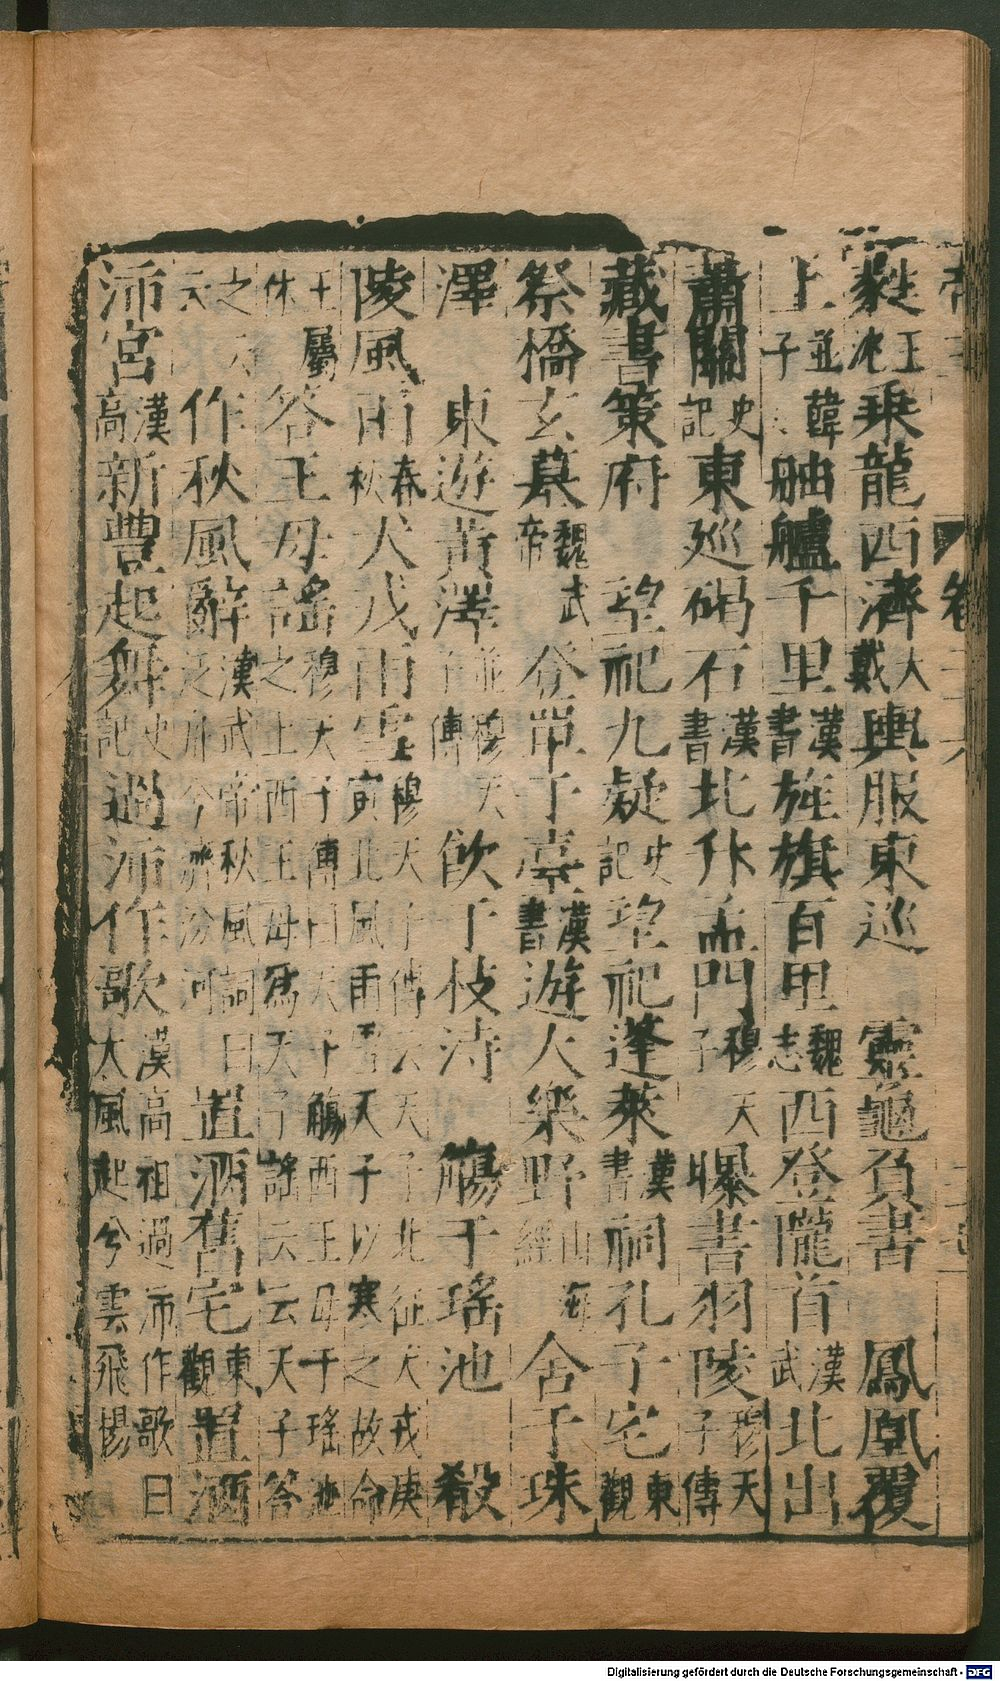 乘龍西濟大戴輿服東巡 靈龜負書 鳳凰覆
上並韓子舳艫千里漢書旌旗百里魏志西登隴首漢武北出
蕭關史記東巡碣石漢書北升孟門穆天子 曝書羽陵穆天子傳
藏書策府 望祀九疑史記望祀蓬萊漢書祠孔子宅東觀
祭橋玄墓魏武帝 登單于臺漢書遊大樂野山海經 舍于珠
澤 東遊黃澤並穆天子傳 飲于枝洔 觴于瑤池 殺
陵風雨春秋犬戎雨雪穆天子傳云天子北征犬戎庚寅北風雨雪天子以寒之故命
王屬休答王母謠穆天子傳曰天子觴西王母于瑤池之上西王母爲天子謠云云天子答
之云 作秋風辭漢武帝秋風詞曰泛舟兮濟汾河 置酒舊宅東觀置酒
沛宮漢高新豐起舞史記過沛作歌漢高祖過沛作歌曰大風起兮雲飛揚
Digitalisierung gefördert durch die Deutsche Forschungsgemeinschaft - DFG